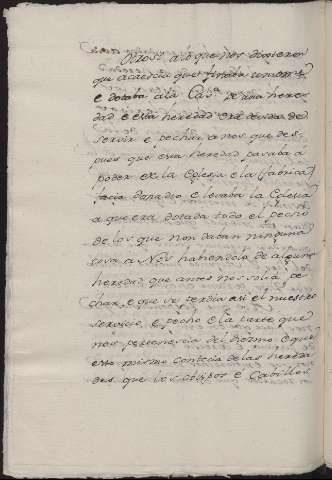 Otrosi alo que nos dixieron
que acaecia que
e dotaba ala de una here
dad e esta heredad era
servir e pechar a nos que des
pues que esta heredad pasaba a
poder de la Eglesia e la
facia e levaba la Eglesia
a que era dotada todo el pecho
de los que non daban ninguna
cosa a Nos habiendola de alguna
heredad que antes nos solia pe
char, e que se perdia asi el nuestro
servicio, e pecho e la parte que
nos pertenescia del diezmo e que
esto mismo contecia de las hereda
des que los obispos e Cabillos